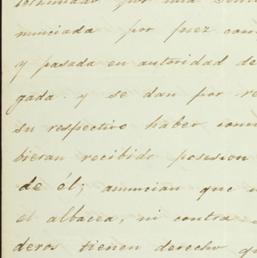 por una
nunciada por juez com
y pasada en autoridad de
gada y se dan por re
su respectivo haber como
bieran recibido posesion
de él; anuncian que
el albacea, ni contra
deros tienen derecho